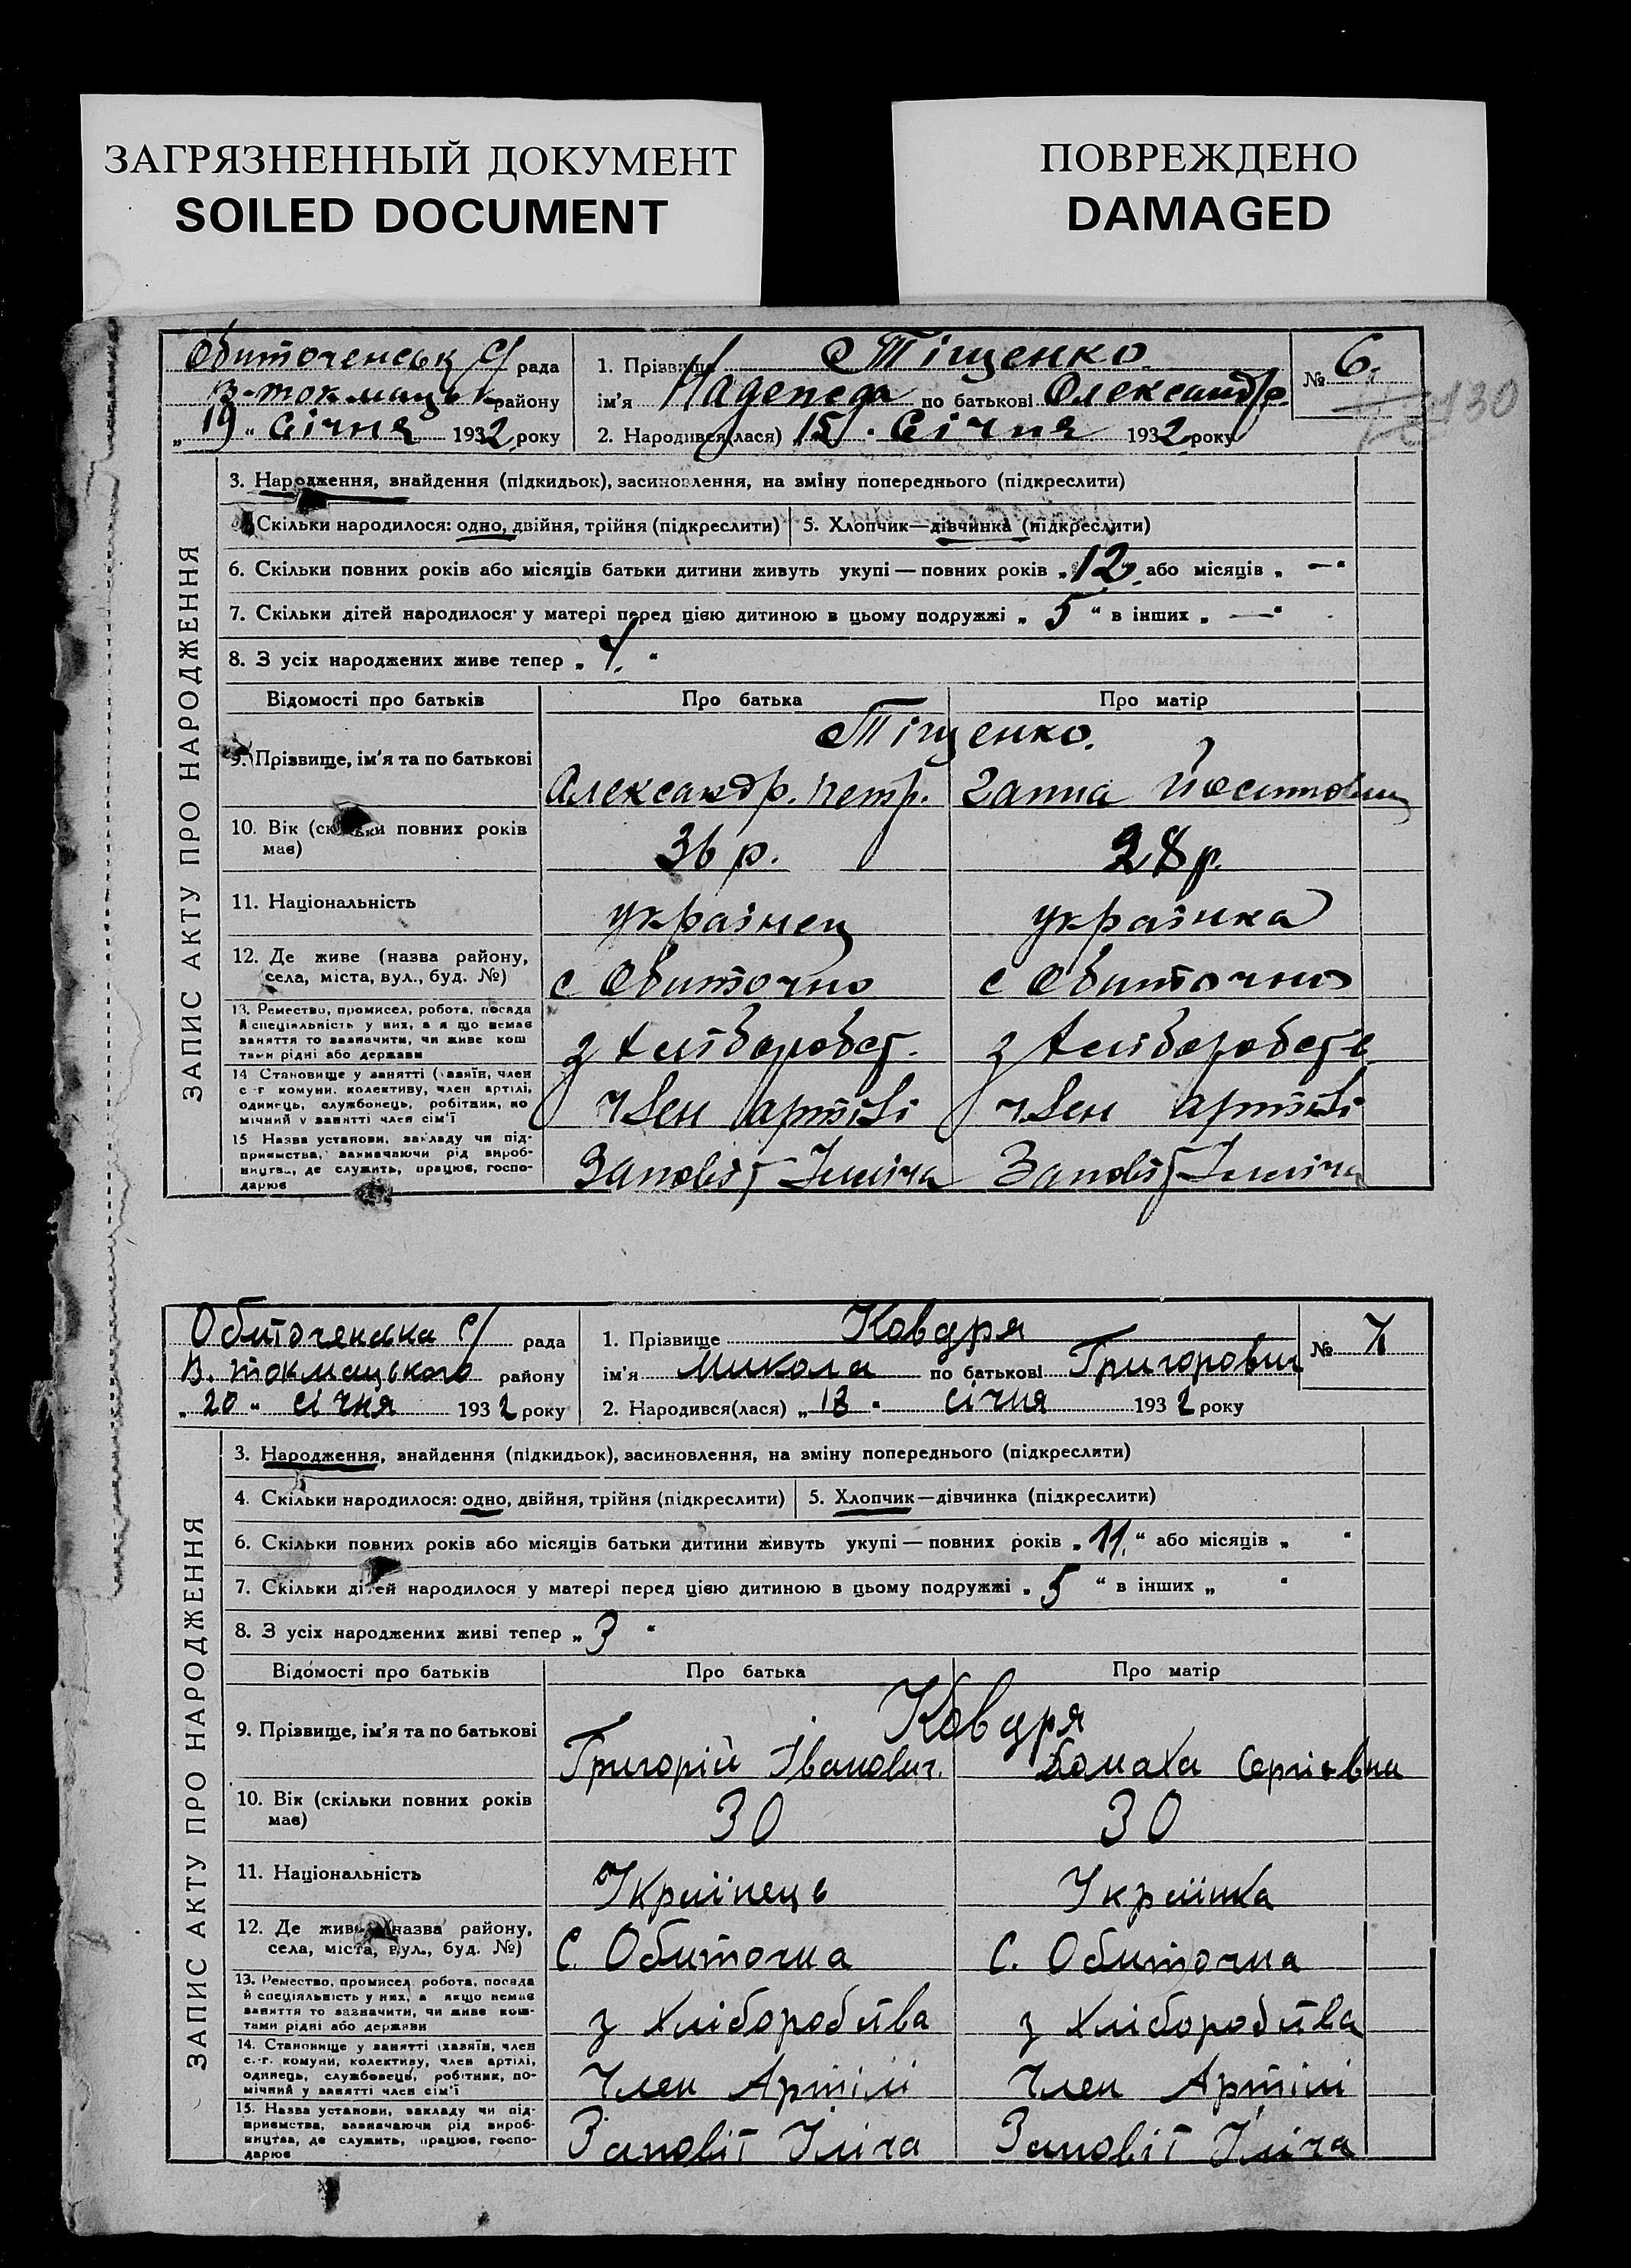 ЗАГРЯЗНЕННЫЙ ДОКУМЕНТ
SOILED DOCUMENT
ПОВРЕЖДЕНО
DAMAGED
Обиточенськ с/ рада
В-токмацьк району
„ 19 “ Січня 1932 року
1. Прізвище Тіщенко.
ім'я по батькові Олександр.
2. Народився(лася) 15 Січня 1932 року
№ 6.
130
ЗАПИС АКТУ ПРО НАРОДЖЕННЯ
3. Народження, знайдення (підкидьок), засиновлення, на зміну попереднього (підкреслити)
Скільки народилося: одно, двійня, трійня (підкреслити) 5. Хлопчик—дівчинка (підкреслити)
6. Скільки повних років або місяців батьки дитини живуть укупі — повних років „ 12 “ або місяців „ — “
7. Скільки дітей народилося у матері перед цією дитиною в цьому подружжі „ 5 “ в інших „ — “
8. З усіх народжених живе тепер „ “
Відомості про батьків Про батька Про матір
Тіщенко.
9. Прізвище, ім'я та по батькові
Александр. петр. Ганна
10. Вік (скільки повних років
має)
36 р. 28 р.
11. Національність
українец українка
12. Де живе (назва району,
села, міста, вул., буд. №)
с Обиточно с Обиточно
13. Ремество, промисел, робота, посада
й спеціяльність у них, а я що немає
заняття то зазначити, чи живе кош
тами рідні або держави
з хліборобст. з хліборобств
14 Становище у занятті (хазяїн, член
с -г комуни, колективу, член артілі,
одинець, службовець, робітник, по
мічний у занятті член сім'ї
член артілі член артілі
15 Назва установи, закладу чи під-
приємства, зазначаючи рід вироб-
ництва, де служить, працює, госпо-
дарює
Заповіт Ілліча Заповіт Ілліча
Обиточенська с/ рада
В. токмацького району
„ 20 “ січня 1932 року
1. Прізвище Ковдря
ім'я Микола по батькові Григорович
2. Народився(лася) „ 18 “ січня 1932 року
№ 7
ЗАПИС АКТУ ПРО НАРОДЖЕННЯ
3. Народження, знайдення (підкидьок), засиновлення, на зміну попереднього (підкреслити)
4. Скільки народилося: одно, двійня, трійня (підкреслити) 5. Хлопчик—дівчинка (підкреслити)
6. Скільки повних років або місяців батьки дитини живуть укупі — повних років „ 11. “ або місяців „ “
7. Скільки дітей народилося у матері перед цією дитиною в цьому подружжі „ 5 “ в інших „ “
8. З усіх народжених живі тепер „ 3 “
Відомості про батьків Про батька Про матір
Ковдря
9. Прізвище, ім'я та по батькові
Григорій Іванович. Домаха Сергієвна
10. Вік (скільки повних років
має)
30 30
11. Національність
Українець Українка
12. Де живе (назва району,
села, міста, вул., буд. №)
С. Обиточна С. Обиточна
13. Ремество, промисел, робота, посада
й спеціяльність у них, а якщо немає
заняття то зазначити, чи живе кош-
тами рідні або держави
з хліборобства з хліборобства
14. Становище у занятті (хазяїн, член
с.-г. комуни, колективу, член артілі,
одинець, службовець, робітник, по-
мічний у занятті член сім'ї
Член Артілі Член Артілі
15. Назва установи, закладу чи під-
приємства, зазначаючи рід вироб-
ництва, де служить, працює, госпо-
дарює
Заповіт Іліча Заповіт Іліча